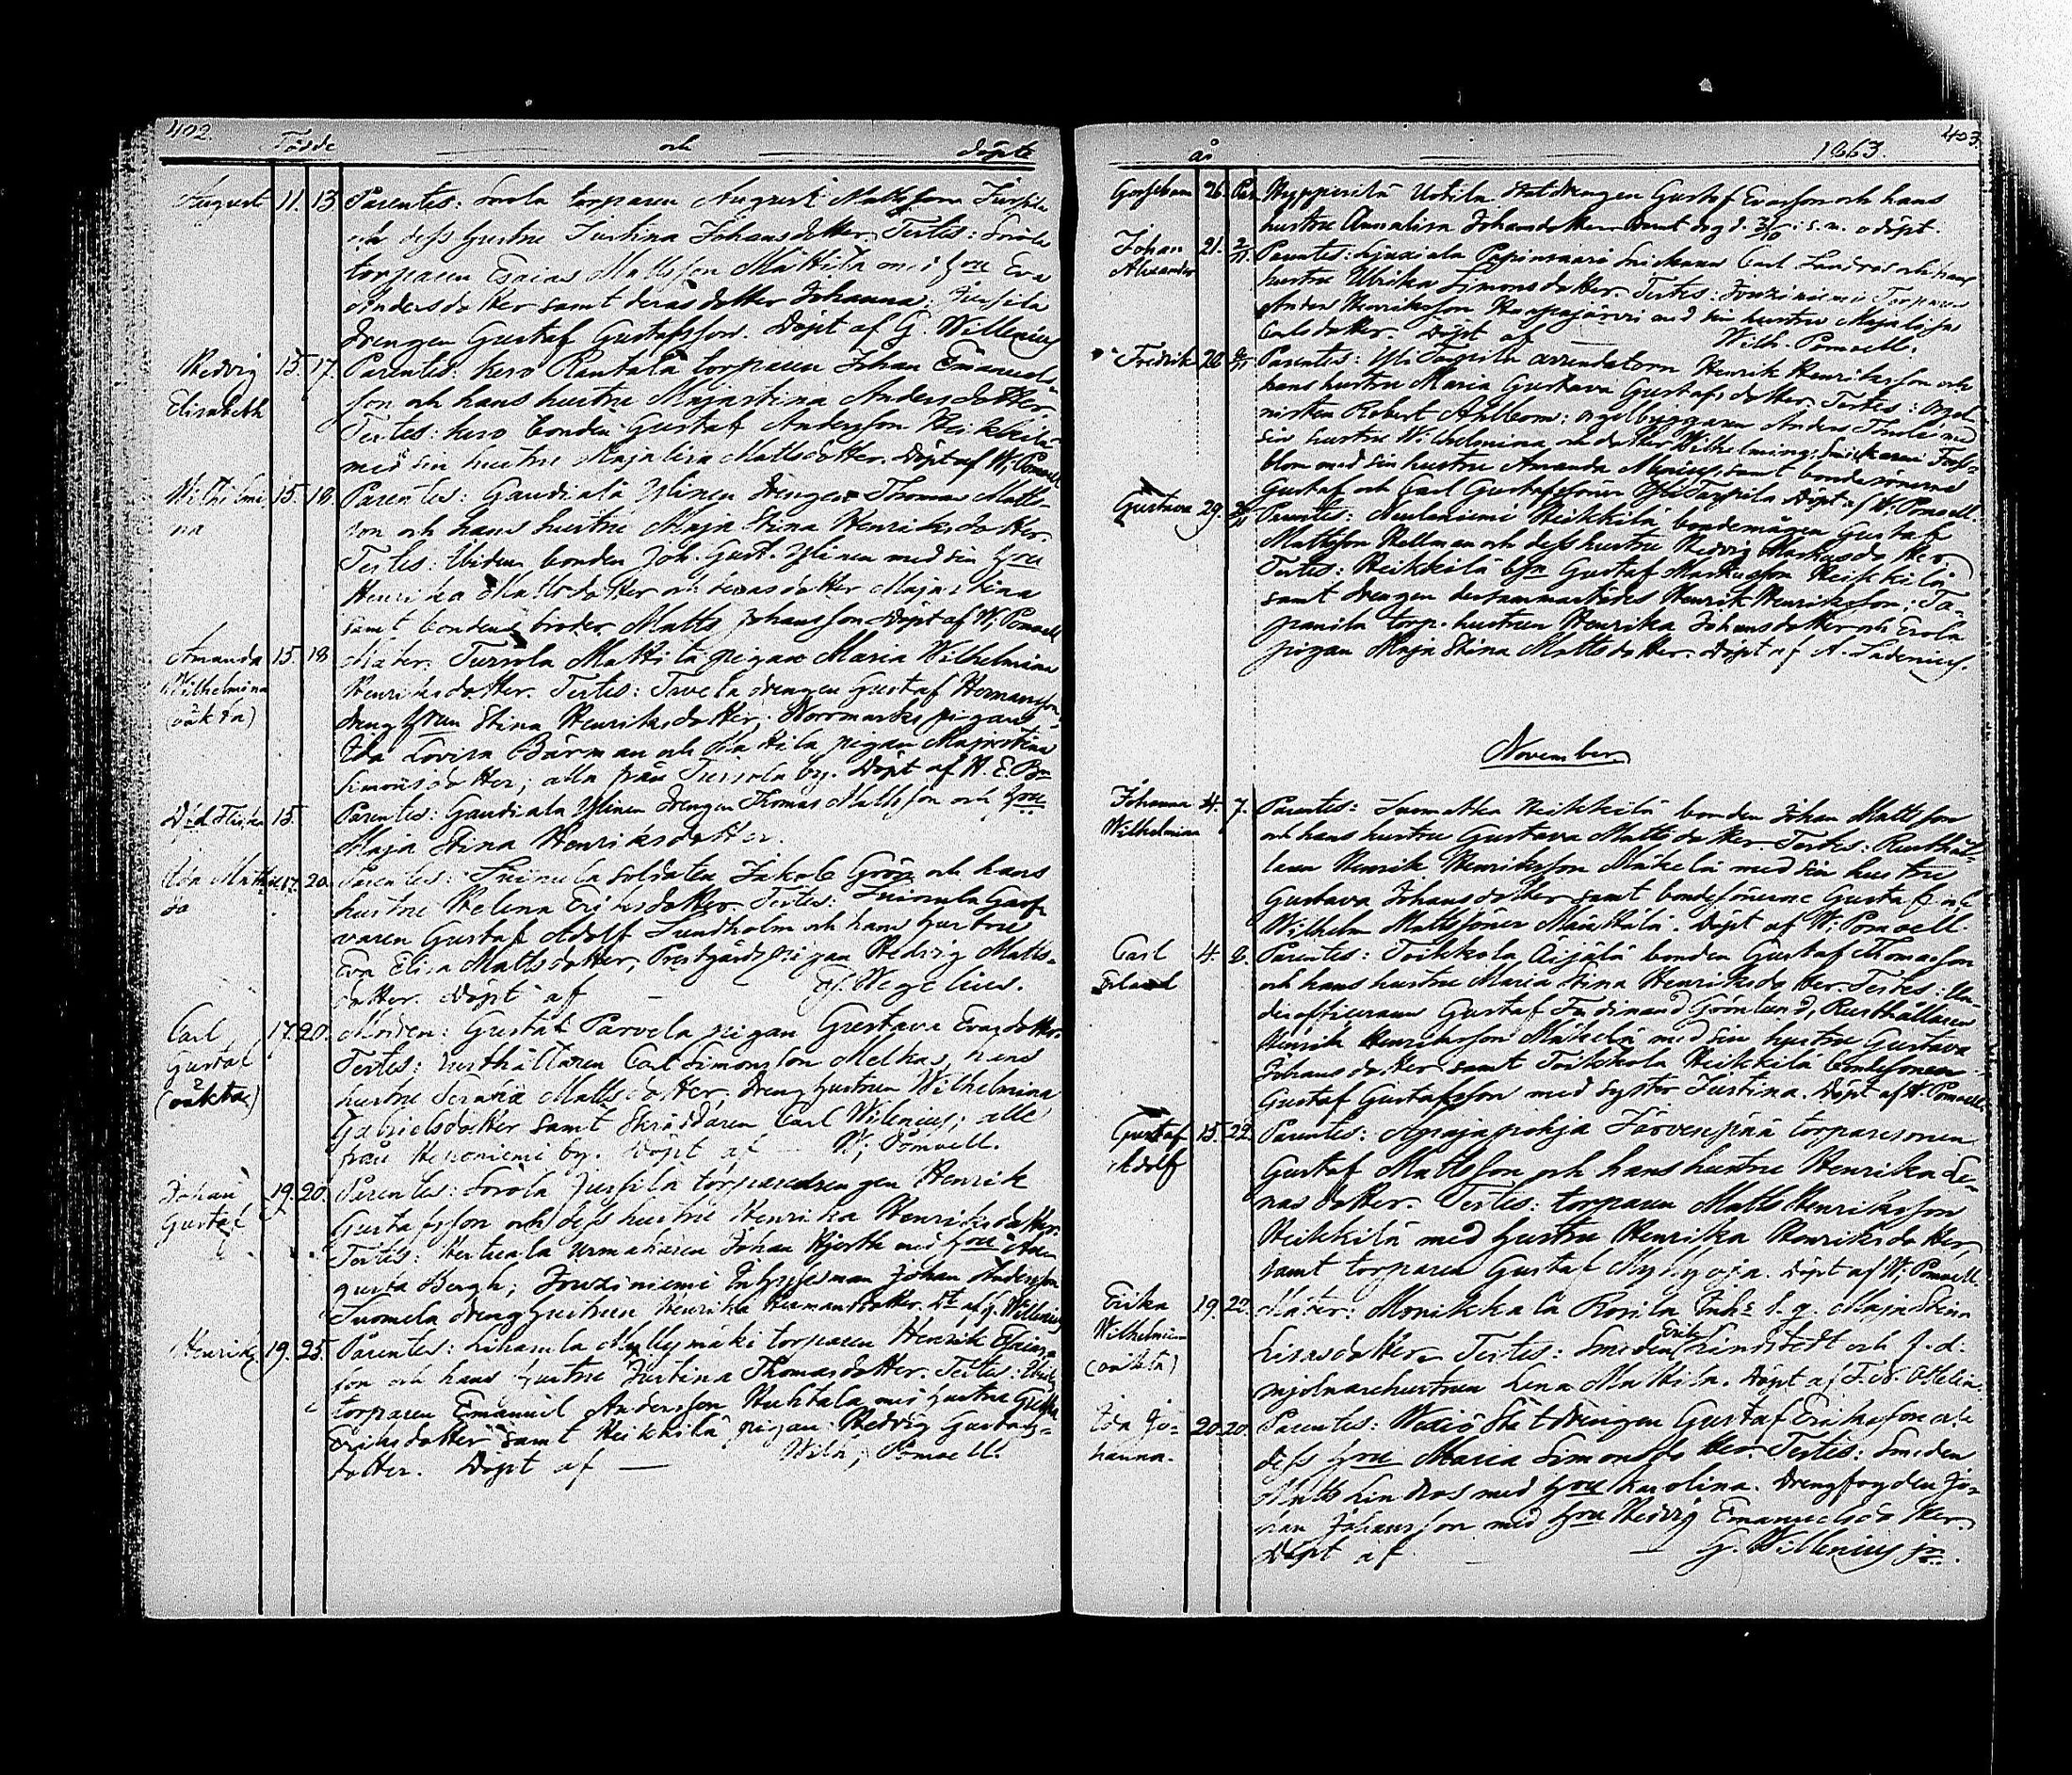 402. Födde och döpte
August 11. 13 Parentes: Sorola torparen August Mattsson Jussila
och dess hustru Justina Johansdotter. Testes: Sorola
torparen Esaias Mattsson Mattila med hu Eva
Andersdotter samt deras dotter Johanna; Jussila
drengen Gustaf Gustafsson. Döpt af G. Willenius
Hedvig 15. 17. Parentes: hero Rantala torparen Johan Emanuels-
Elisabeth son och hans hustru Majastina Andersdotter.
Testes: hero bonden Gustaf Andersson Heikkilä
med sin hustru Majalisa Mattsdotter. Döpt af W. Pomoell
Wilhelmi- 15. 18. Parentes: Gaudiala Ylinen drengen Thomas Matts-
na son och hans hustru Maja Stina Henriksdotter
Testes: Ibidem bonden Joh. Gust. Ylinen med sin hu
Henrika Mattsdotter och deras dotter Majastina
samt bondens broder Matts Johansson Döpt af W. Pomoell
Amanda 15. 18. Mater: Tursola Mattila pigan Maria Wilhelmina
Wilhelmina Henriksdotter. Testes: Tavela drengen Gustaf Hermansson,
(oäkta) dreng hrun Stina Henriksdotter; Norrmarks pigan
Ida Lovisa Bärman och Mattila pigan Majastina
Simonsdotter; alla från Tursola by. Döpt af
Död Flicka 15. Parentes: Gaudiala Ylinen drengen Thomas Mattsson och hu
Maja Stina Henriksdotter.
Ida Mathil- 17. 20. Parentes: soldaten Jakob Grön och hans
da hustru Helena Eriksdotter. Testes: Garf-
varen Gustaf Adolf Sundholm och hans hustru
Eva Elisa Mattsdotter, Prestgårds pigan Hedvig Matts-
dotter. Döpt af — Wegelius.
Carl 17. 20. Moder: Gustaf Parvela pigan Gustava Evasdotter.
Gustaf Testes: rusthållaren Carl Simonsson Melkas, hans
(oäkta) hustru Serafia Mattsdotter, dreng hustrun Wilhelmina
Gabrielsdotter samt Skräddaren Carl Wilenius; alla
från Henoniemi by. Döpt af — W. Pomoell.
Johan 19. 20. Parentes: Sorola Jussila torparedrengen Henrik
Gustaf Gustafsson och dess hustru Henrika Henriksdotter.
Testes: Hertuala urmakaren Johan Hjorth med hu Au-
gusta Bergh; Jouziniemi Inhysesman Johan Andersson
Suomela dreng hustrun Henrika Hermansdotter. Dt af G. Willenius
Henrik 19. 25. Parentes: Lihamla Myllymäki torparen Henrik Esaias-
son och hans hustru Justina Thomasdotter. Testes:
torparen Emanuel Andersson Huhtala med hustru
Eriksdotter samt Heikkilä pigan Hedvig Gustafs-
dotter. Döpt af — Wilh. Pomoell.
år 1863. 403.
26. Hypperilä Uotila Statdrengen Gustaf Evasson och hans
hustru Annalisa Johansdotter
Johan 21. Parentes: Papinsaari Snickaren Carl Landros och hans
Alexander hustru Ulrika Simonsdotter. Testes: Jouziniemi Torparen
Anders Henriksson Haapajärvi med sin hustru Majalisa
Carlsdotter. Döpt af — Wilh. Pomoell.
Fredrik 28. Parentes: Yli Tappila arrendatorn Henrik Henriksson och
hans hustru Maria Gustava Gustafsdotter. Testes: orga-
nisten Robert Ahlbom; orgelbyggaren Anders Thulé med
sin hustru Wilhelmina och dotter Wilhelmina; Snickaren
blom med sin hustru Amanda samt bondesönerna
Gustaf och Carl Gustafssöner Yli Tappila Döpt af W. Pomoell.
Gustava 29. Parentes: Neulaniemi Heikkilä bondemågen Gustaf
Mattsson Hellman och dess hustru Hedvig Markusdotter
Testes: Heikkilä Gustaf Markusson Heikkilä
samt drengen dersammastädes Henrik Henriksson; Ta-
panila torp. hustrun Henrika Johansdotter och Erola
pigan Maja Stina Mattsdotter. Döpt af A. Ladenius.
November
Johanna 4. 7. Parentes: Heikkilä bonden Johan Mattsson
Wilhelmina och hans hustru Gustava Mattsdotter. Testes: Rusthål-
laren Henrik Henriksson Mäkelä med sin hustru
Gustava Johansdotter samt bondesönerne Gustaf och
Wilhelm Mattssöner Mänttälä. Döpt af W. Pomoell.
Carl 4. 8. Parentes: Toikkola Äijälä bonden Gustaf Thomasson
Erland och hans hustru Maria Stina Henriksdotter. Testes: Un-
derofficeraren Gustaf Ferdinand Grönlund, Rusthållaren
Henrik Henriksson Mäkelä med sin hustru Gustava
Johansdotter samt Toikkola Heikkilä bondesonen
Gustaf Gustafsson med syster Justina. Döpt af W. Pomoell.
Gustaf 15. 22. Parentes: Apajapohja Järvenpää torparesonen
Adolf Gustaf Mattsson och hans hustru Henrika Le-
nasdotter. Testes: torparen Matts Henriksson
Heikkilä med hustru Henrika Henriksdotter,
samt torparen Gustaf Kylyoja. Döpt af W. Pomoell
Erika 19. 22. Mater: Monikkala Rosila Inhs. Maja Stina
Wilhelmina Lisasdotter. Testes: Smeden Erik Lindstedt och f.d.
(oäkta) mjölnarehustrun Lena Mattila. Döpt af
Ida Jo- 20. 20. Parentes: Wexiö Statdrengen Gustaf Eriksson och
hanna. dess hu Maria Simonsdotter. Testes: Smeden
Matts Lindros med hu Karolina. Drengfogden Jo-
han Johansson med hu Hedvig Emanuelsdotter.
Döpt af — G. Willenius jr.